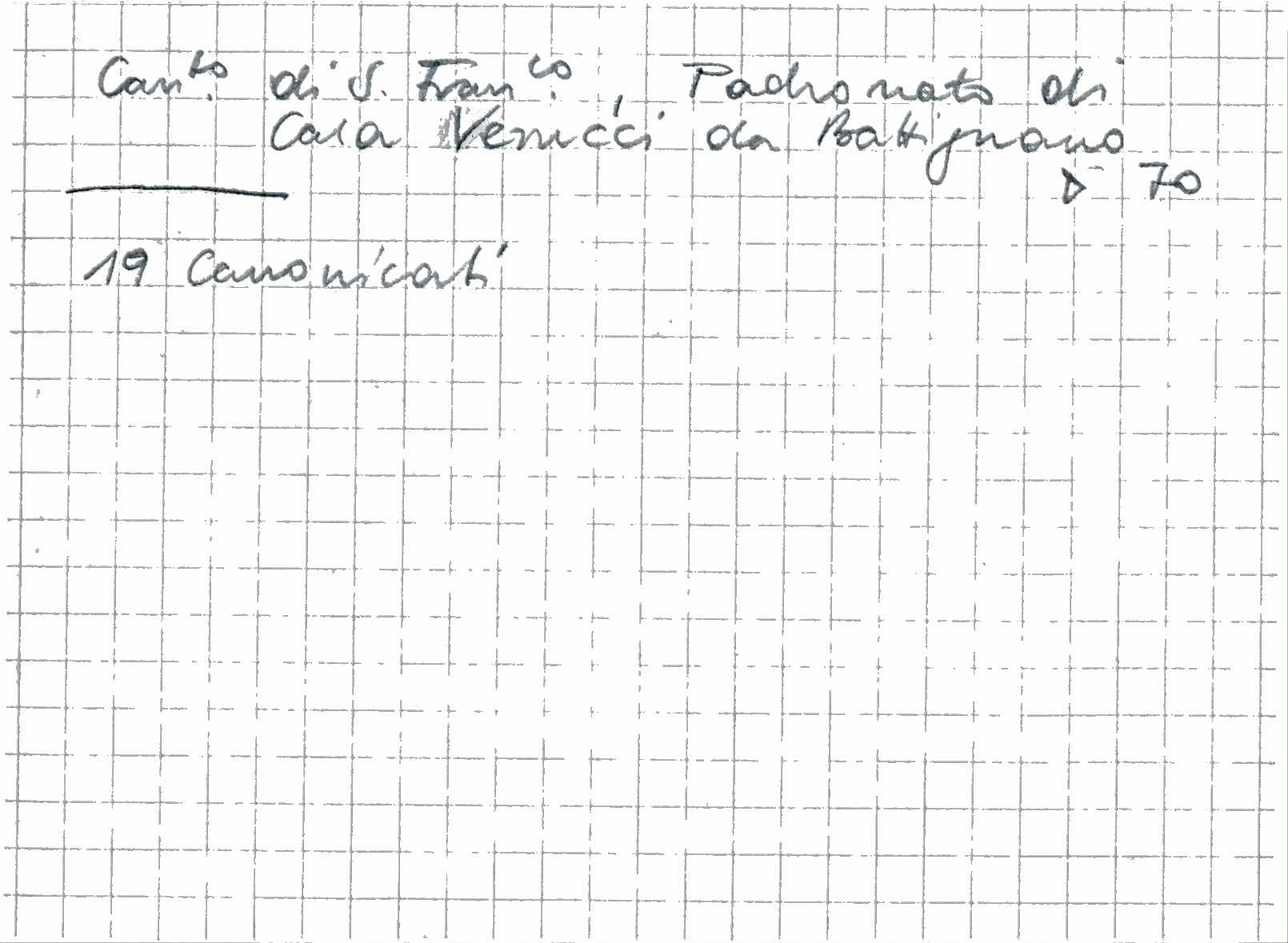 Can.to di S. Fran.co, Padronato di
Casa Venucci da Batignano
▷ 70
19 Canonicati